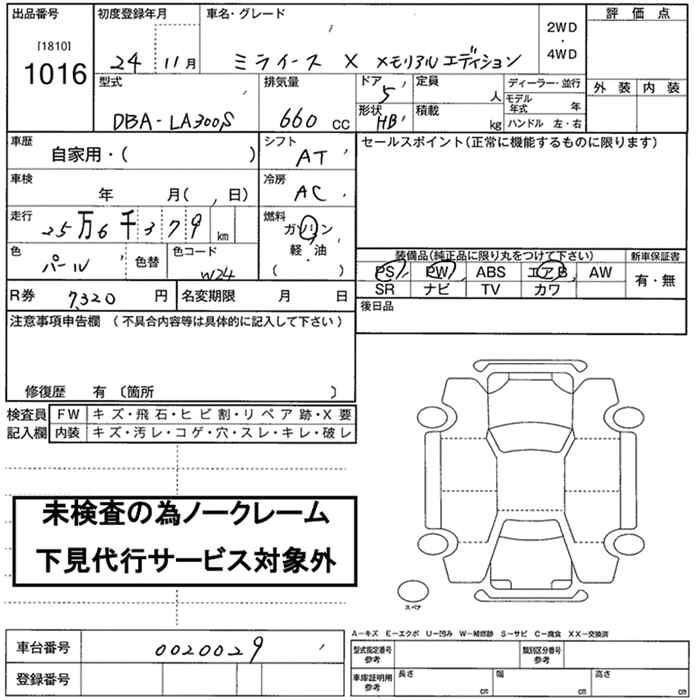 出品番号 初度登録年月 車名・グレード 2WD・4WD 評価点
[1810]
1016 24 11月 ミライース X メモリアルエディション 外装 内装
型式 排気量 ドア 5 定員 人 ディーラー・並行
DBA-LA300S 660 CC 形状 HB 積載 kg モデル年式 年
ハンドル 左・右
車歴 自家用・( ) シフト AT セールスポイント(正常に機能するものに限ります)
車検 年 月( , 日) 冷房 AC
走行 25万6千379 km 燃料 ガソリン
軽・油
( )
色 パール 色替 色コード W24 装備品(純正品に限り丸をつけて下さい) 新車保証書
PS PW ABS エアB AW 有・無
SR ナビ TV カワ
R券 7,320 円 名変期限 月 日 後日品
注意事項申告欄 (不具合内容等は具体的に記入して下さい)
修復歴 有 〔箇所 〕
検査員 FW キズ・飛石・ヒビ割・リペア跡・X要
記入欄 内装 キズ・汚レ・コゲ・穴・スレ・キレ・破レ
未検査の為ノークレーム
下見代行サービス対象外
スペア
A－キズ E－エクボ U－凹み W－補修跡 S－サビ C－腐食 XX－交換済
車台番号 0020029 型式指定番号 参考 類別区分番号 参考
登録番号 車庫証明用 参考 長さ cm 幅 cm 高さ cm